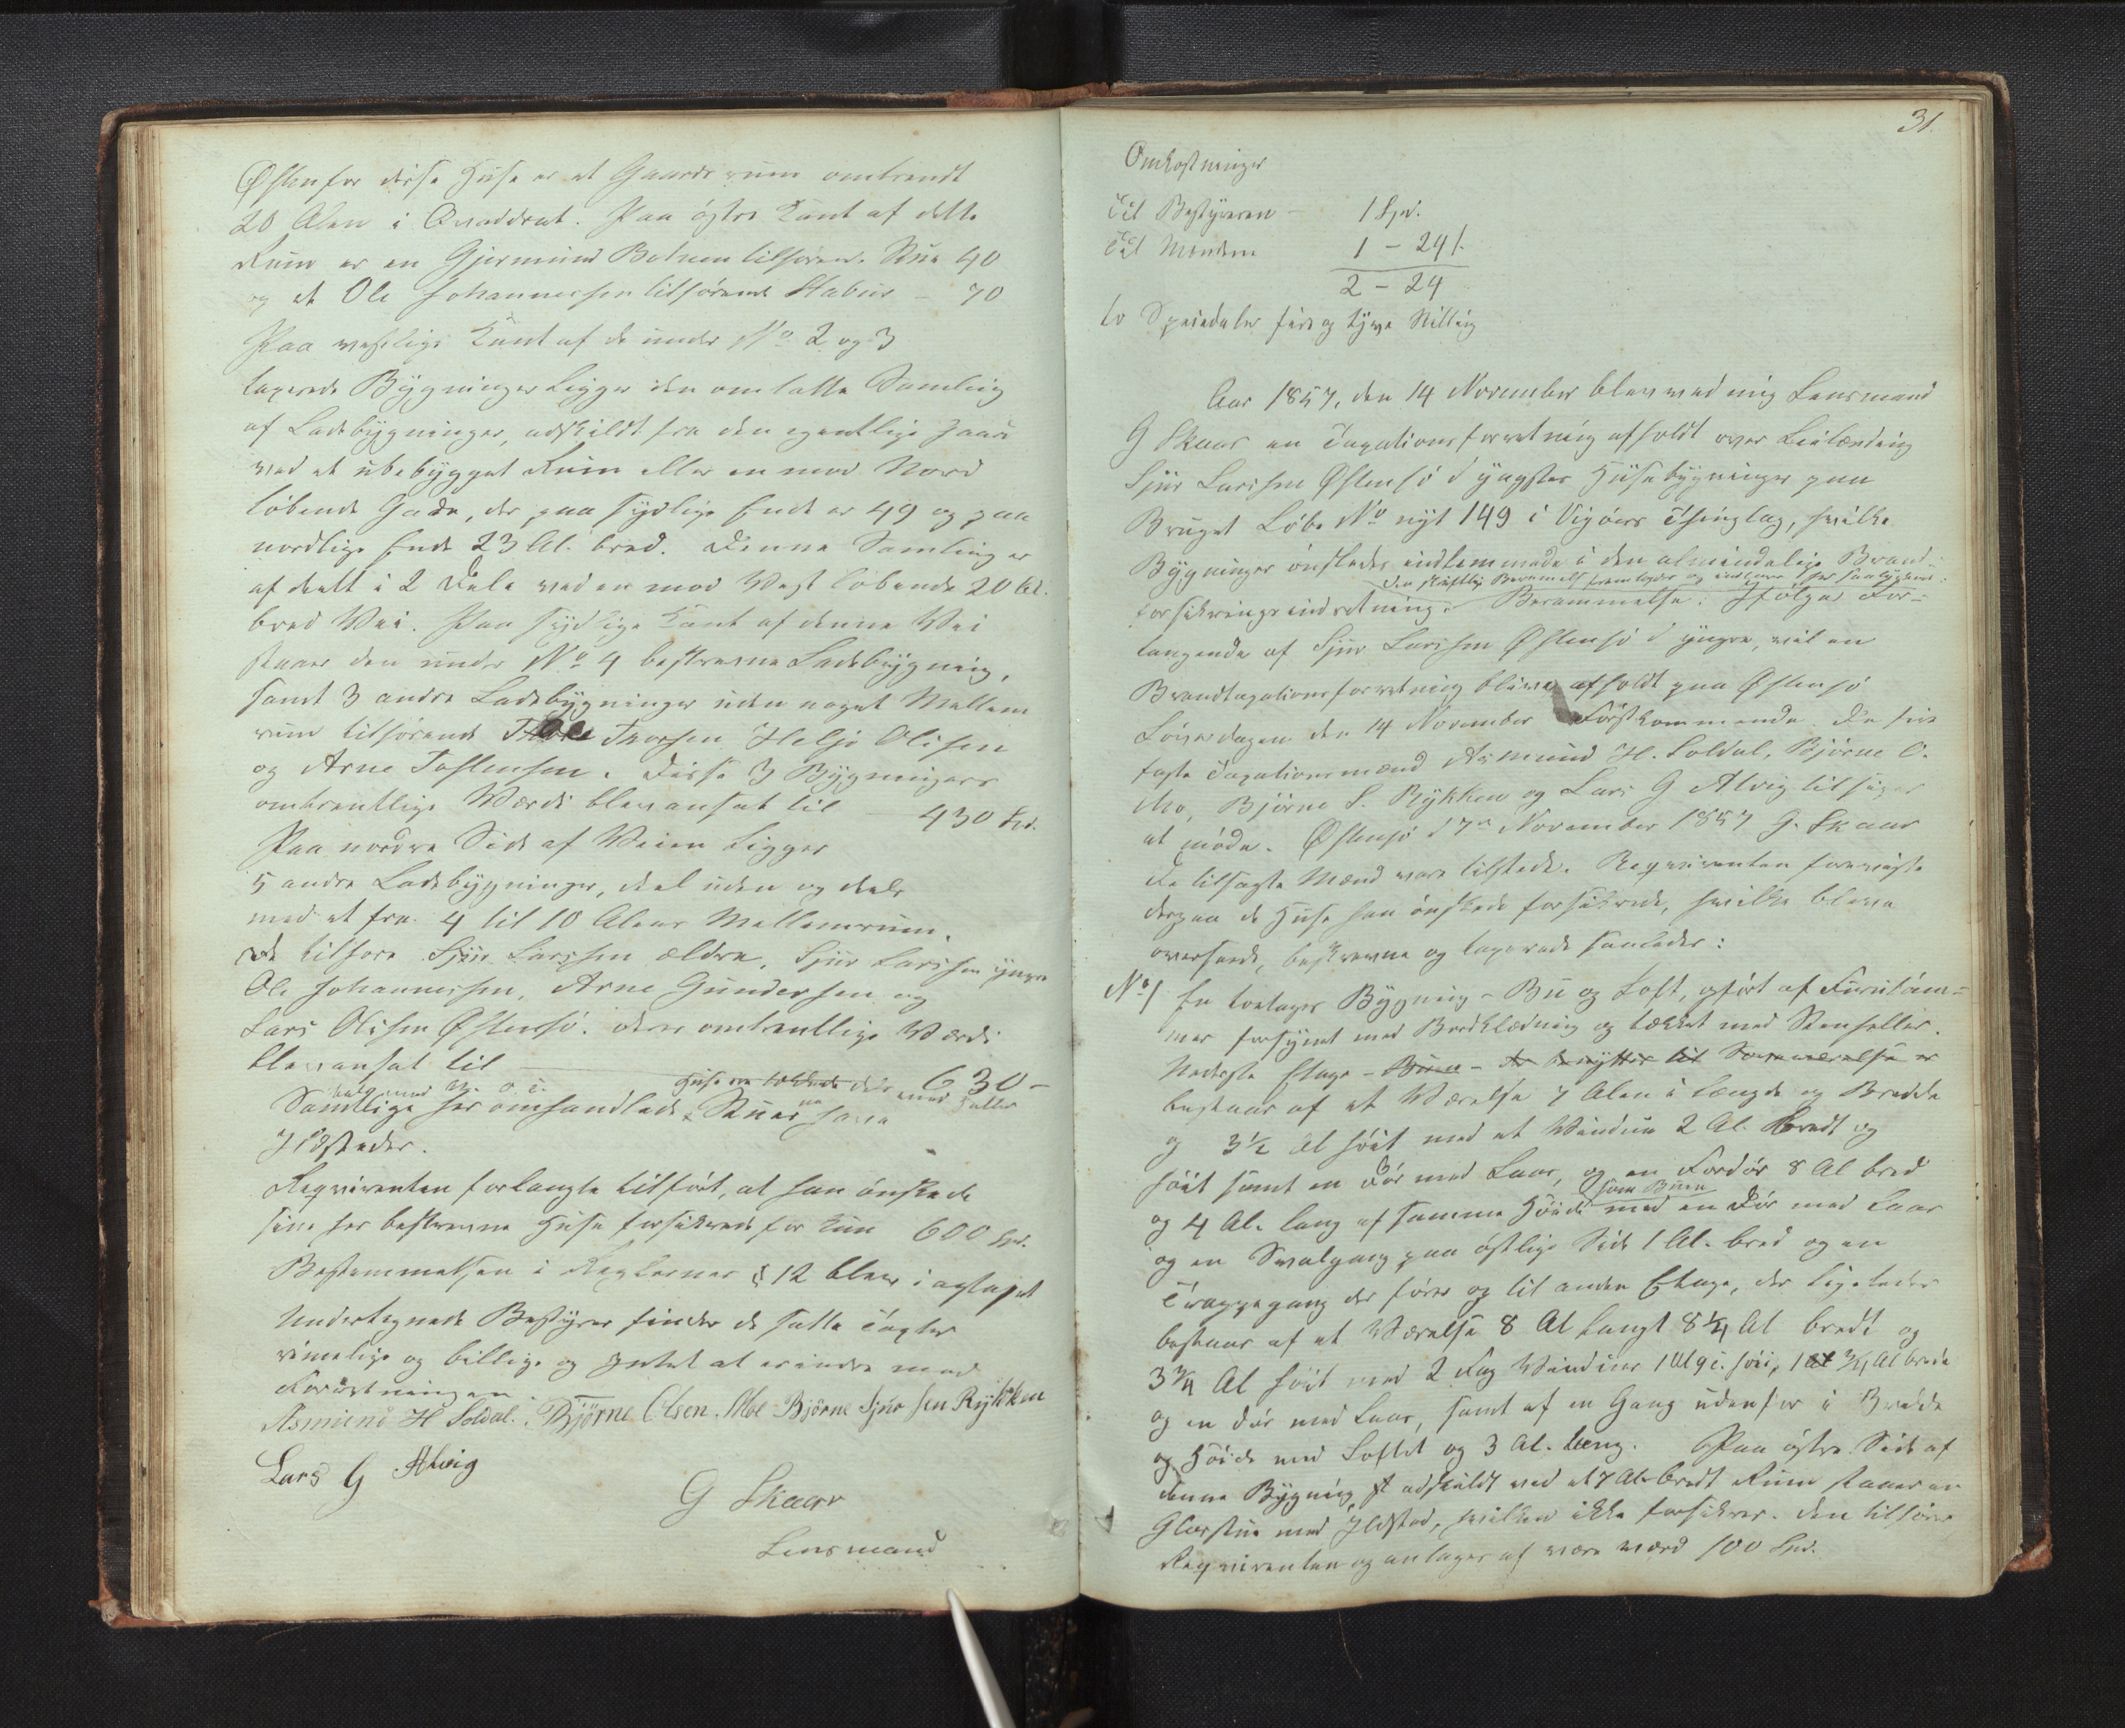 Østenfor disse Huse er et Gaardsrum omtrendt
20 Alen i Qvaddrat. Paa østre Kant af dette
Rum er en Gjermund Botnen tilhørende Stue 40
og et Ole Johannessen tilhørende Stabur – 70
Paa vestlige Kant af de under No 2 og 3
taxerede Bygninger Ligger den omtalte Samling
af Ladebygninger, adskildt fra den egentlige
ved et ubebygget Rum eller en mod Nord
løbende Gade, der paa sydlige Ende er 49 og paa
nordlige Ende 23 Al. bred. Denne Samling er
af deelt i 2 Dele ved en mod Vest løbende 20 Al.
bred Vei. Paa sydlige Kant af denne Vei
staaer den under No 4 beskrevne Ladebygning,
samt 3 andre Ladebygninger uden noget Mellem
rum tilhørende Torssen Helje Olsen
og Arne Tostensen. Disse 3 Bygningers
omtrentlige Værdi blev ansat til – 430 Spd.
Paa nordre Side af Veien Ligger
5 andre Ladebygninger, deel uden og deels
med et fra 4 til 10 Alens Mellemrum.
De tilhøre Sjur Larssen ældre, Sjur Larssen yngre
Ole Johannessen, Arne Gundersen og
Lars Olsen Østensø. deres omtrentlige Værdi
blev ansat til 630 –
Huse ere tækkede dels med Heller
dels med N. o. T.
Samtlige her omhandlede Stuer have
Ildsteder.
Reqvirenten forlangte tilført, at han ønskede
sine her beskrevne Huse forsikrede for kun 600 Spd.
Bestemmelsen i Reglernes § 12 blev iagtaget
Undertegnede Bestyrer finder de satte Taxter
rimelige og billige og Intet at erindre mod
Forretningen.
Asmund H Soldal. Bjørne Olsen Moe Bjørne Sjursen Rykken
Lars G Alvig
G Skaar
Lensmand
31.
Omkostninger
Til Bestyreren – 1 Spd.
Til Mændene 1 – 24 s.
2 – 24
to Speciedaler fire og tyve Skilling
Aar 1857, den 14 November blev ved mig Lensmand
G Skaar en Taxationsforretning afholdt over Leilænding
Sjur Larssen Østensø d yngstes Husebygninger paa
Bruget Løbe No nyt 149 i Vigøers Thinglag, hvilke
Bygninger ønskedes indlemmede i den almindelige Brand-
den skriftlig Berammelse fremlagdes og indtages her saalydende:
forsikringsindretning. Berammelse: Ifølge For-
langende af Sjur Larssen Østensø d yngre, vil en
Brandtaxationsforretning blive afholdt paa Østensø
Løverdagen den 14 November Førstkommende. De fire
faste Taxationsmænd Asmund H. Soldal, Bjørne O.
Mo, Bjørne S. Rykken og Lars G Alvig tilsiges
at møde. Østensø d 7de November 1857 G. Skaar
De tilsagte Mænd vare tilstede. Reqvirenten foreviste
derpaa de Huse han ønskede forsikrede, hvilke bleve
overseede, beskrevne og taxerede saaledes:
No 1 En toetages Bygning – Bu og Loft, opført af Furutøm-
mer forsynet med Bordklædning og tækket med Steenheller.
Nederste Etage – Buen – der benyttes til Sommerværelse er
bestaar af et Værelse 7 Alen i Længde og Bredde
og 3½ Al høit med et Vindue 2 Al. bredt og
høit samt en Dør med Laas, og en Fordør 8 Al bred
og 4 Al. lang af samme Høide som Buen med en Dør med Laas
og en Svalgang paa østlige Side 1 Al. bred og en
Trappegang der fører op til anden Etage, der Ligeledes
bestaar af et Værelse 8 Al Langt 8¼ Al bredt og
3¾ Al høit med 2 Fag Vinduer 1 Al 9 T. høi, 1 ¾ Al brede
og en Dør med Laas, samt af en Gang udenfor i Bredde
og Høide med Loftet og 3 Al. lang. Paa østre Side af
denne Bygning adskildt ved et 7 Al. bredt Rum staaer en
Glasstue med Ildsted, hvilken ikke forsikres. den tilhører
Reqvirenten og antages at være værd 100 Spd.